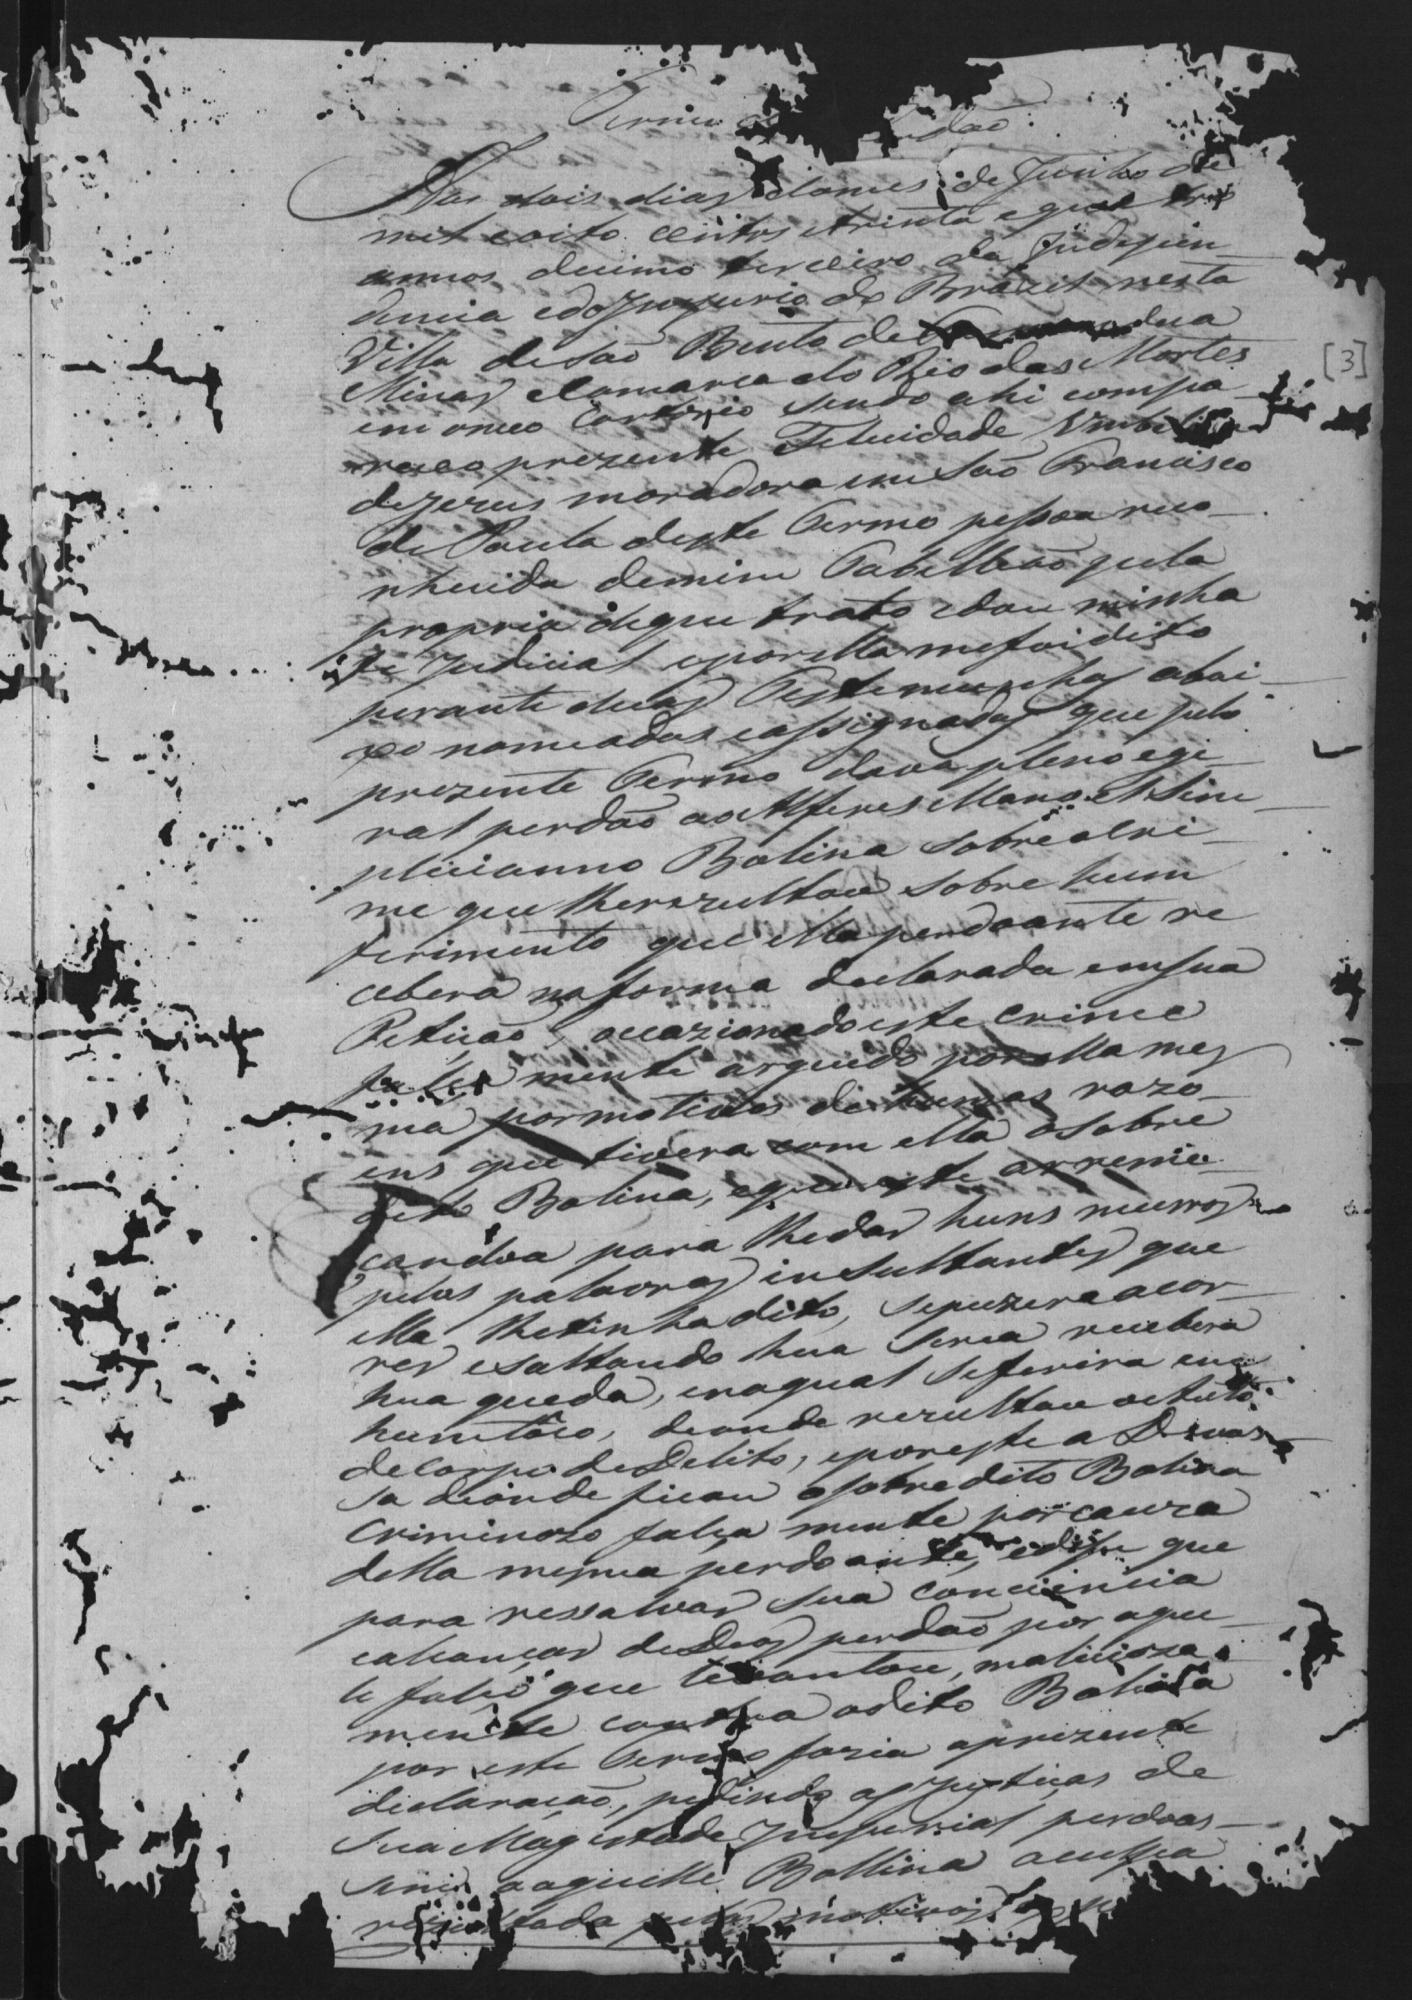 Termo dão
Aos dois dias domes de Junho de
mil eoito centos etrinta equatro
annos decimo terceiro da Indepen
dencia edo Imperio do Brazil nesta
Villa de São Bento de dua
Minas Comarca do Rio das Mortes
em omeo Cartorio sendo ahi compa
receo prezente Felicidade
de Jezus moradora em São Francisco
de Paula deste Termo pessoa reco
nhecida demim Tabelleão pela
propria deque trato edou minha
fe Judicial eporella mefoi dito
perante duas Testemunhas abai
xo nomeadas eassignadas que pelo
prezente Termo dava pleno ege
ral perdão ao Alferes Manoel Sim
plicianno Bolina sobre o Cri
me que lherezultou sobre hum
ferimento que ella perdoante re
cebera naforma declarada emsua
Petição, occazionado este Crime
falça mente arguido porella mes
ma pormotivos de humas razo
ens que tivera com ella osobre
dito Bolina, eque este arreme
çandoa para lhedar huns murros
pelas palavras insultantes que
ella lhetinha dito, sepuzera acor
rer esaltando hua serca recebera
hua queda, enaqual seferira em
humtôco, deonde rezultou oAuto
deCorpo deDelito, eporeste a Devas
sa deonde ficou osobredito Bolina
Criminozo falça mente porcauza
della mesma perdoante, edisse que
para ressalvar sua conciencia
ealcançar deDeos perdão por aque
le falço que levantou, malicioza
mente contra odito Bolina
por este Termo fazia aprezente
declaração, pedindo asJustiças de
Sua Magestade Imperial perdoas
sem aaquelle Bollina aculpa
rezultada pelos motivos
[3]